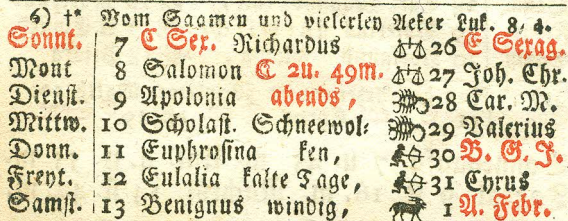 6) †* Vom Saamen und vielerley Aeker Luk. 8, 4.
Sonnt. 7 C Sex. Richardus 26 E Sexag.
Mont 8 Salomon C 2u. 49m. 27 Joh. Chr.
Dienst. 9 Apolonia abends, 28 Car. M.
Mittw. 10 Scholast. Schneewol⸗ 29 Valerius
Donn. 11 Euphrosina ken, 30 B. G. J.
Freyt. 12 Eulalia kalte Tage, 31 Cyrus
Samst. 13 Benignus windig, 1 A. Febr.